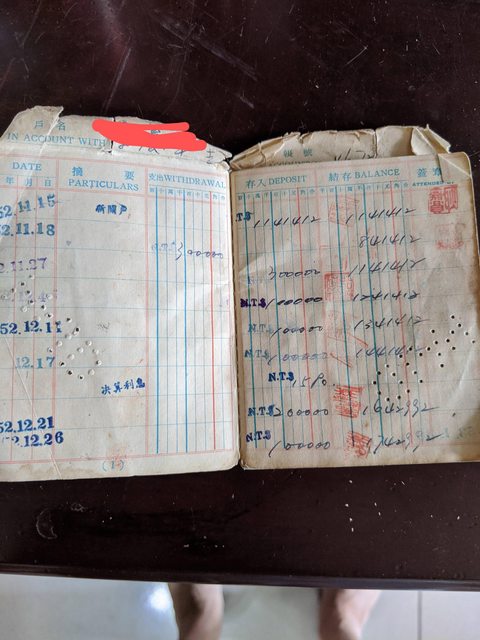 戶名
IN ACCOUNT WITH
帳號
DATE
年 月 日
摘要
PARTICULARS
支出 WITHDRAWAL
存入 DEPOSIT
結存 BALANCE
簽章
ATTENDED BY
52.11.15 新開戶 N.T.$ 1141412 1141412
52.11.18 300000 841412
2.11.27 300000 1141412
N.T.$ 100000 1241412
52.12.11 N.T.$ 100000 1341412
12.17 N.T.$ 100000 1441412
決算利息 N.T.$ 1580
52.12.21 N.T.$ 200000 1642992
52.12.26 N.T.$ 100000 1742992
(1)